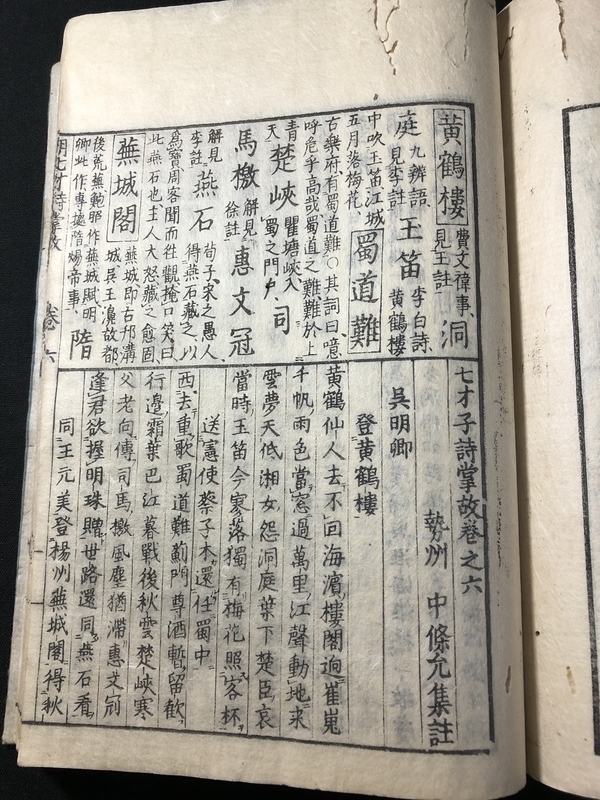 黄鶴樓 費文禕事、見王註 洞
庭 九辨語、見李註 玉笛 李白詩、黄鶴樓
中吹玉笛江城五月落梅花、 蜀道難
古樂府、有蜀道難○其詞曰、噫呼危乎高哉蜀道之難難於上
青天、 楚峽 瞿塘峽、入蜀之門戶、 司
馬檄 解見徐註 惠文冠
解見李註 燕石 荀子、宋之愚人、得燕石藏之、以
爲寶、周客聞而往觀、掩口笑曰、此燕石也、主人大怒藏之愈固
蕪城閣 蕪城、即古邗溝城、吳王濞故都、
後荒蕪、鮑照作蕪城賦、明卿此作專擬隋煬帝事、 隋
明七才詩掌故 卷六
七才子詩掌故卷之六
勢州 中條允集註
吳明卿
登黄鶴樓
黄鶴仙人去不回海濱樓閣逈崔嵬
千帆雨色當窓過萬里江聲動地來
雲夢天低湘女怨洞庭葉下楚臣哀
當時玉笛今寥落獨有梅花照客杯
送憲使蔡子木還任蜀中
西去重歌蜀道難薊門尊酒暫留歡
行邊霜葉巴江暮戰後秋雲楚峽寒
父老向傳司馬檄風塵猶滯惠文冠
逢君欲握明珠贈世路還同燕石看
同王元美登揚州蕪城閣得秋